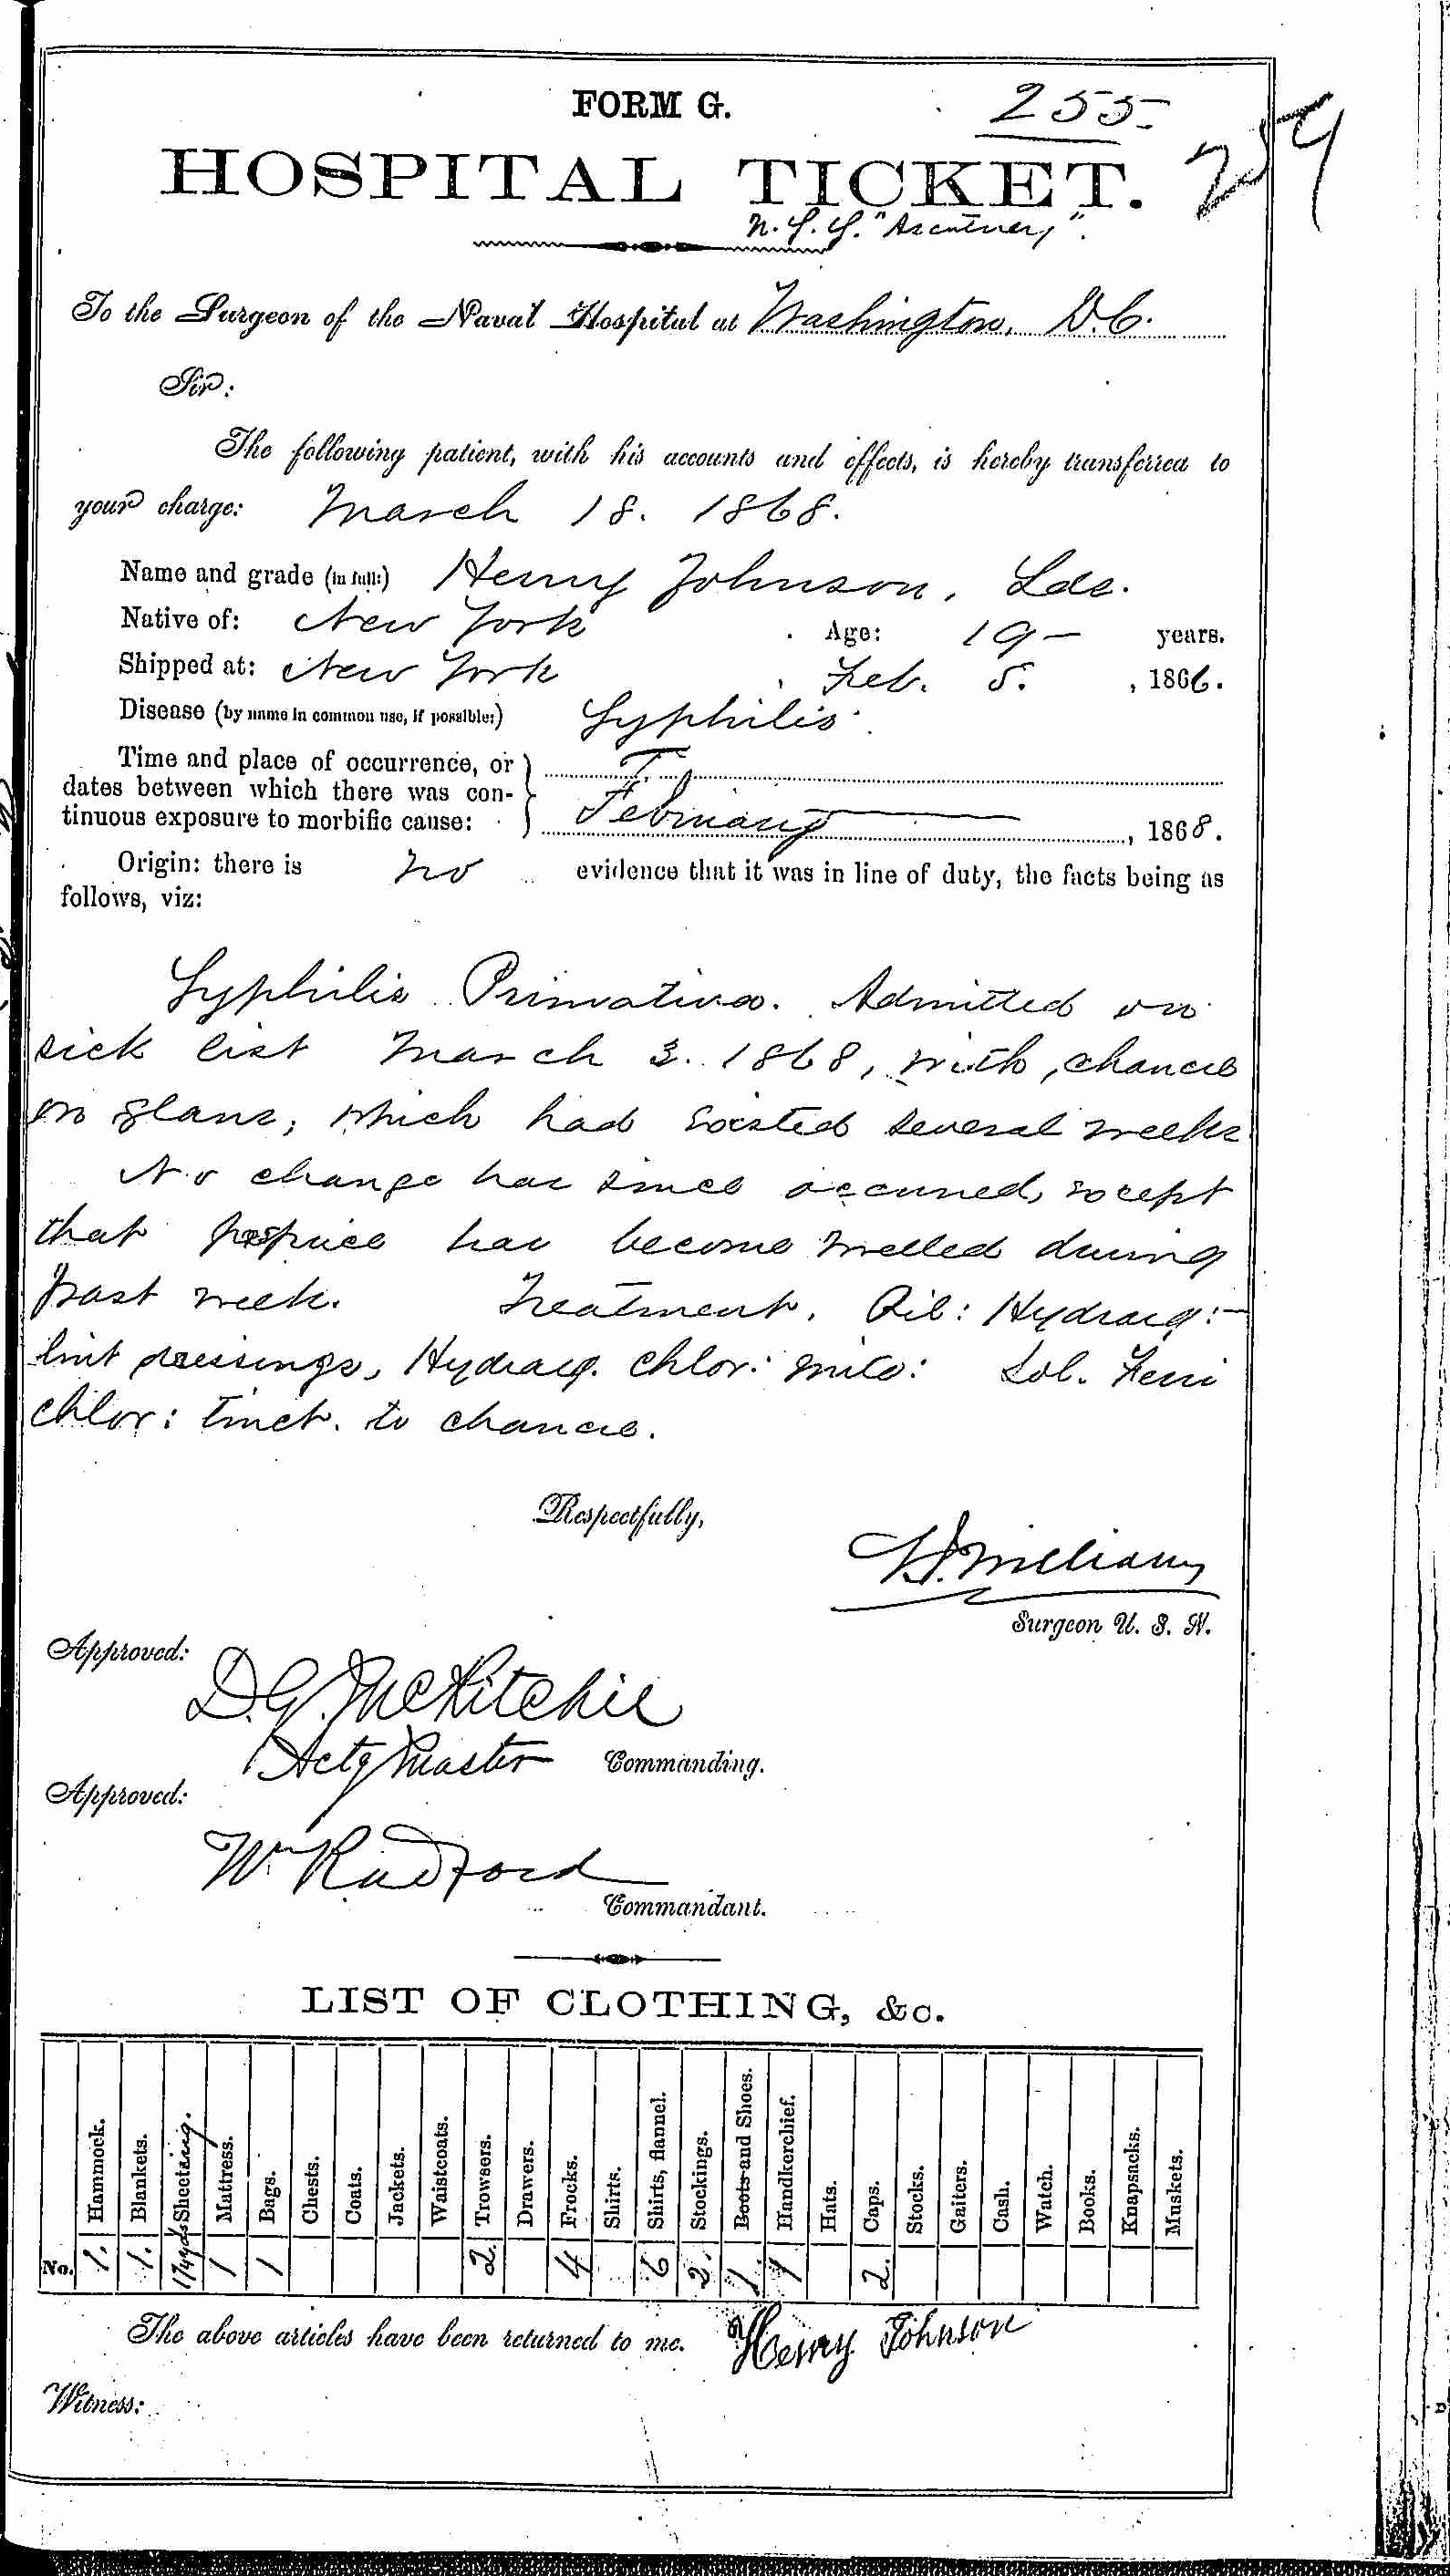 FORM G.
255
259
HOSPITAL TICKET.
N. S. S. "Ascutney".
To the Surgeon of the Naval Hospital at Washington, D.C.
Sir:
The following patient, with his accounts and effects, is hereby transferred to
your charge: March 18. 1868.
Name and grade (in full:) Henry Johnson, Lds.
Native of: New York Age: 19 — years.
Shipped at: New York Feb. 5. , 1866.
Disease (by name in common use, if possible:) Syphilis.
Time and place of occurrence, or
dates between which there was con-
tinuous exposure to morbific cause: February , 1868.
Origin: there is no evidence that it was in line of duty, the facts being as
follows, viz:
Syphilis Primativa. Admitted on
sick list March 3. 1868, with, chancre
on glans, which had existed several weeks
No change has since occurred, except
that prepuce has become swelled during
past week. Treatment. Pil: Hydrarg:—
lint dressings, Hydrarg. chlor: mite: Sol. Ferri
chlor: tinct. to chancre.
Respectfully,
Williams
Surgeon U. S. N.
Approved:
D.G. McRitchie
Actg Master Commanding.
Approved:
W Radford
Commandant.
LIST OF CLOTHING, &c.
Hammock. Blankets. Sheeting. Mattress. Bags. Chests. Coats. Jackets. Waistcoats. Trowsers. Drawers. Frocks. Shirts. Shirts, flannel. Stockings. Boots and Shoes. Handkerchief. Hats. Caps. Stocks. Gaiters. Cash. Watch. Books. Knapsacks. Muskets.
No. 1. 1. 1 1 2. 4 6 2. 1. 1 2.
The above articles have been returned to me. Henry Johnson
Witness: